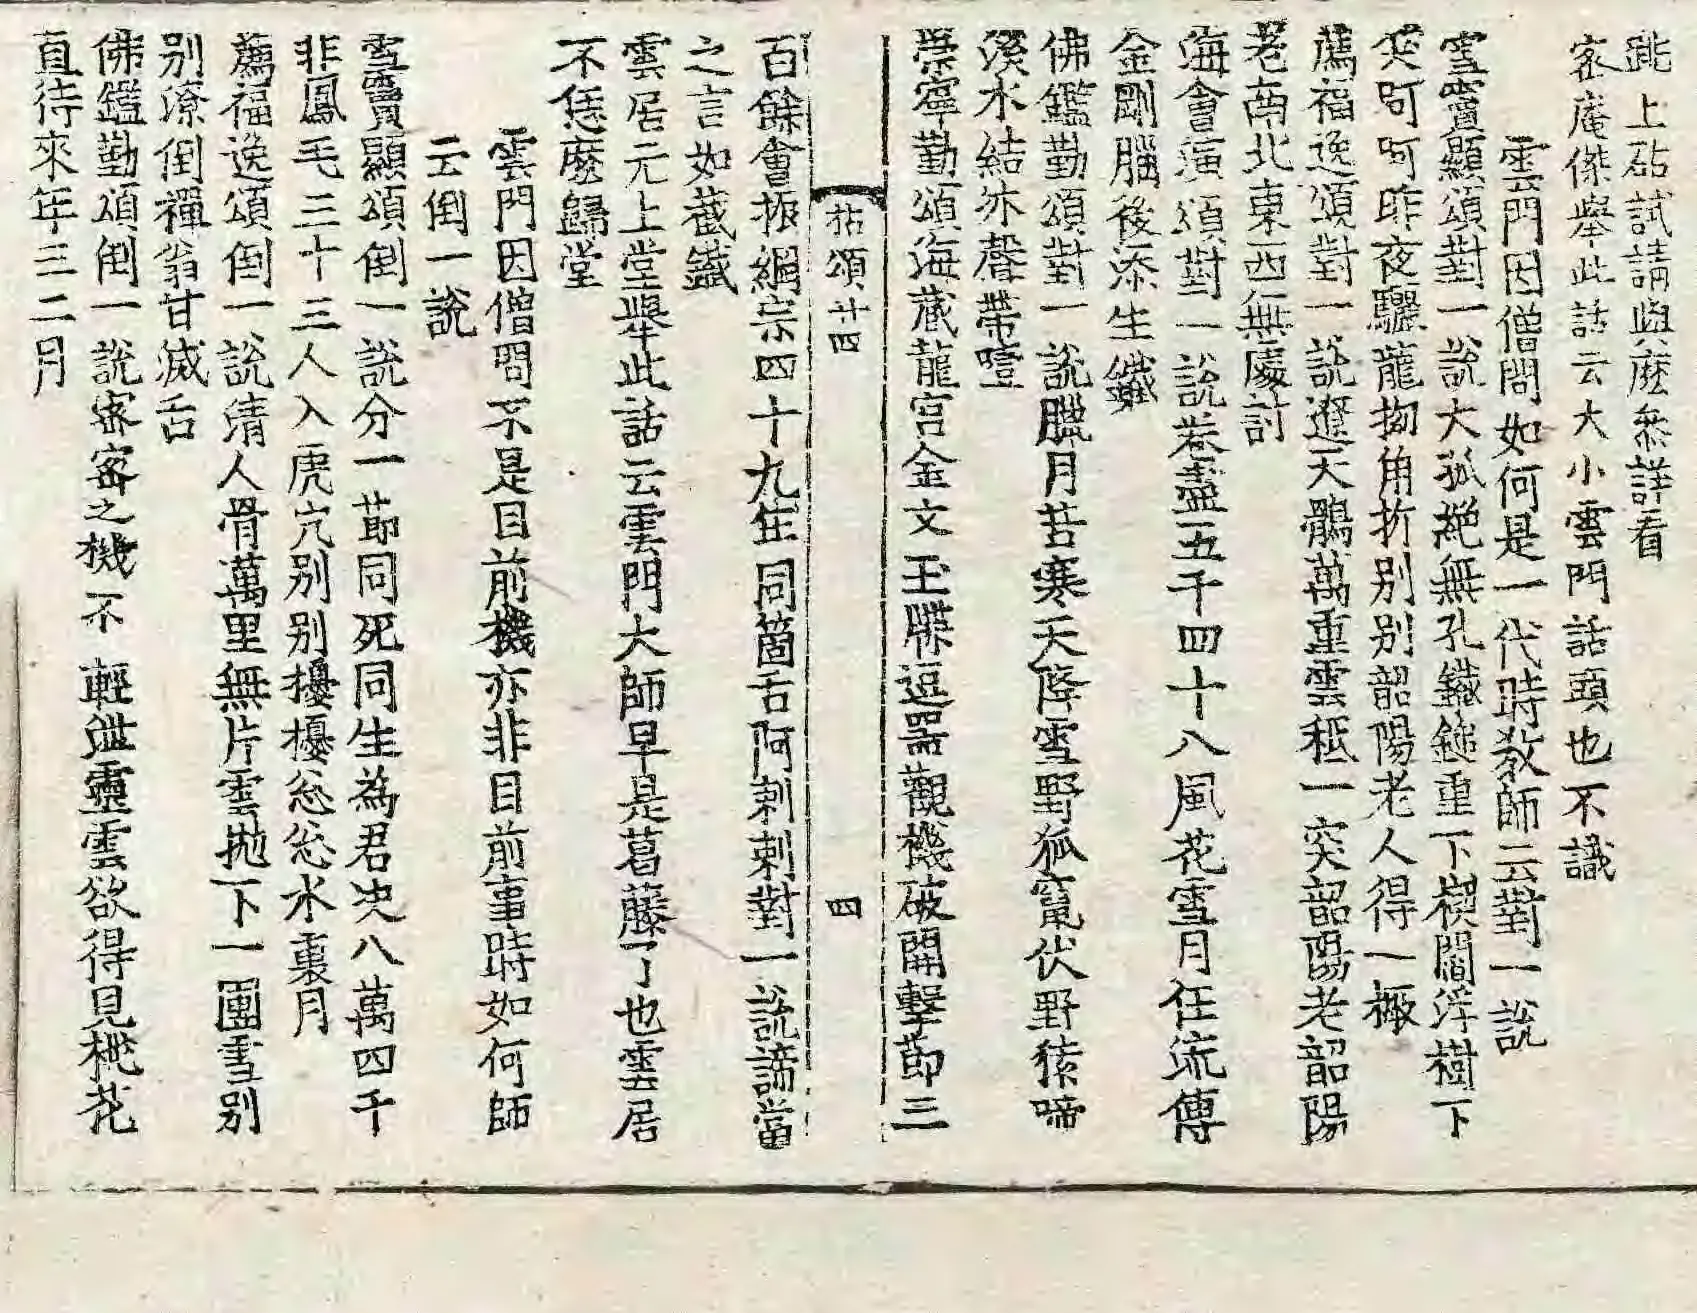 跳上砧試請與麽叅詳看
密庵傑舉此話云大小雲門話頭也不識
雲門因僧問如何是一代時敎師云對一說
雪竇顯頌對一說大孤絶無孔鐵鎚重下楔閻浮樹下
笑呵呵昨夜驪龍拗角折别别韶陽老人得一橛
薦福逸頌對一說遼天鶻萬重雲秪一突韶陽老韶陽
老南北東西無處討
海會演頌對一說卷盡五千四十八風花雪月任流傳
金剛腦後添生鐵
佛鑑勤頌對一說臘月苦寒天降雪野狐窟伏野猿啼
溪水結氷聲帶噎
崇寧勤頌海藏龍宫金文玉牒逗器觀機破開擊節三
拈頌廿四 四
百餘會振綱宗四十九年同箇舌阿剌剌對一說諦當
之言如截鐵
雲居元上堂舉此話云雲門大師早是葛藤了也雲居
不恁麽歸堂
雲門因僧問不是目前機亦非目前事時如何師
云倒一說
雪竇顯頌倒一說分一節同死同生為君决八萬四千
非鳳毛三十三人入虎穴别别擾擾忩忩水裏月
薦福逸頌倒一說淸人骨萬里無片雲抛下一團雪别
别潦倒禪翁甘滅舌
佛鑑勤頌倒一說密密之機不輕泄靈雲欲得見桃花
直待來年三二月